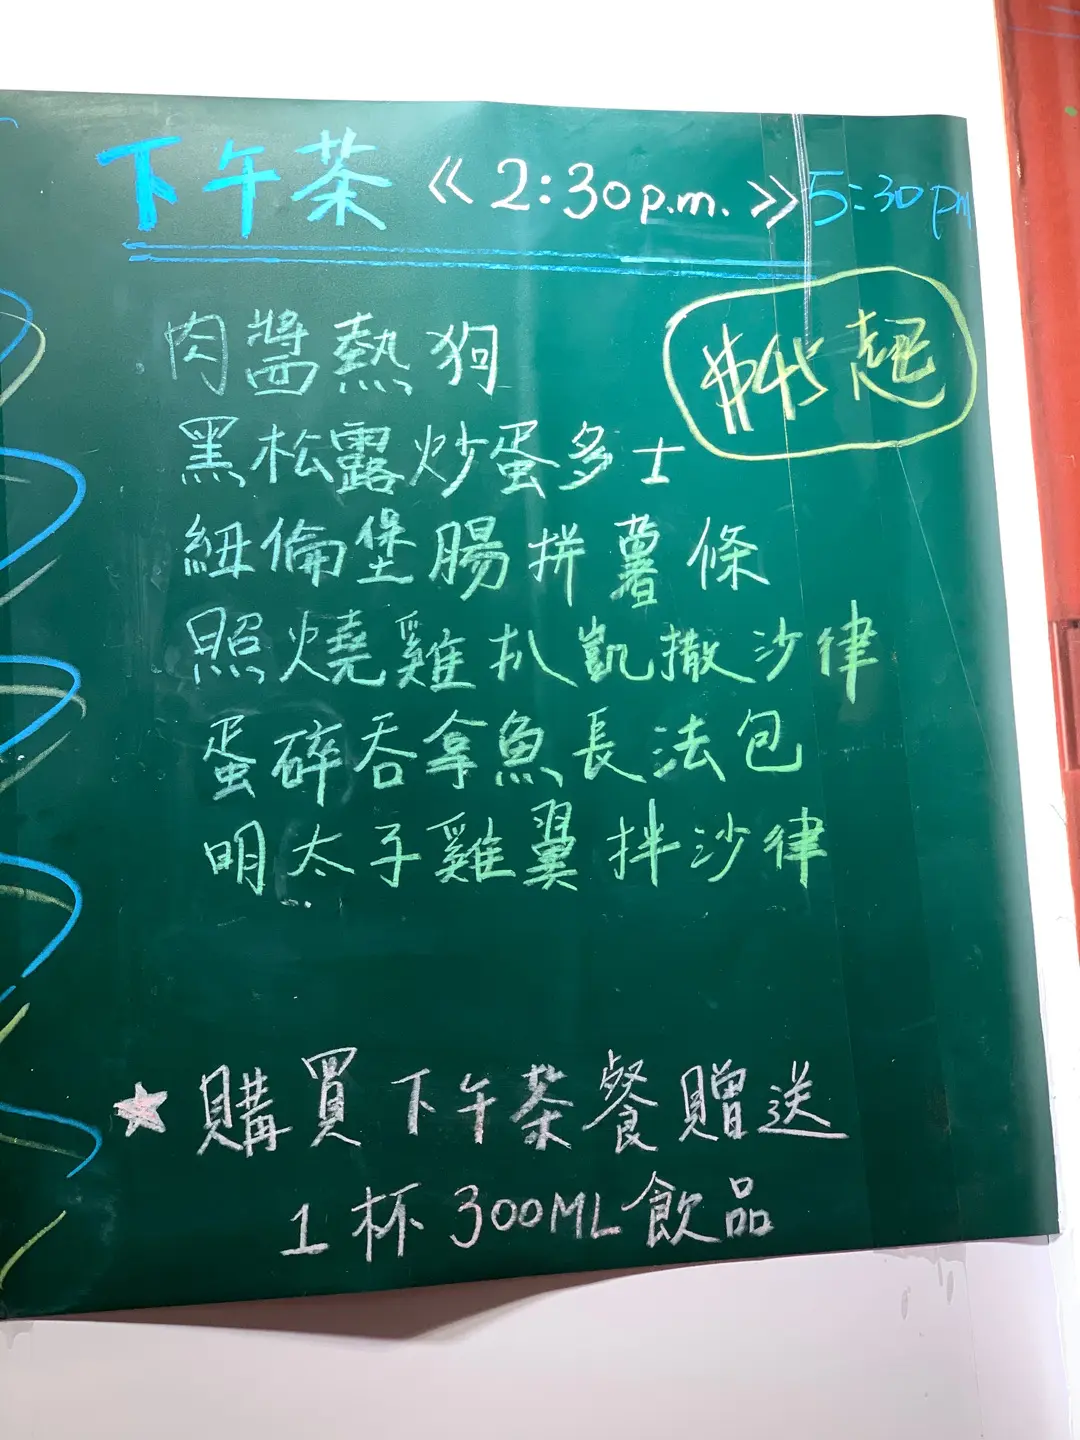 下午茶 《2:30p.m.》5:30pm
$45起
肉醬熱狗
黑松露炒蛋多士
紐倫堡腸拼薯條
照燒雞扒凱撒沙律
蛋碎吞拿魚長法包
明太子雞翼拌沙律
★購買下午茶餐贈送
1杯300ML飲品